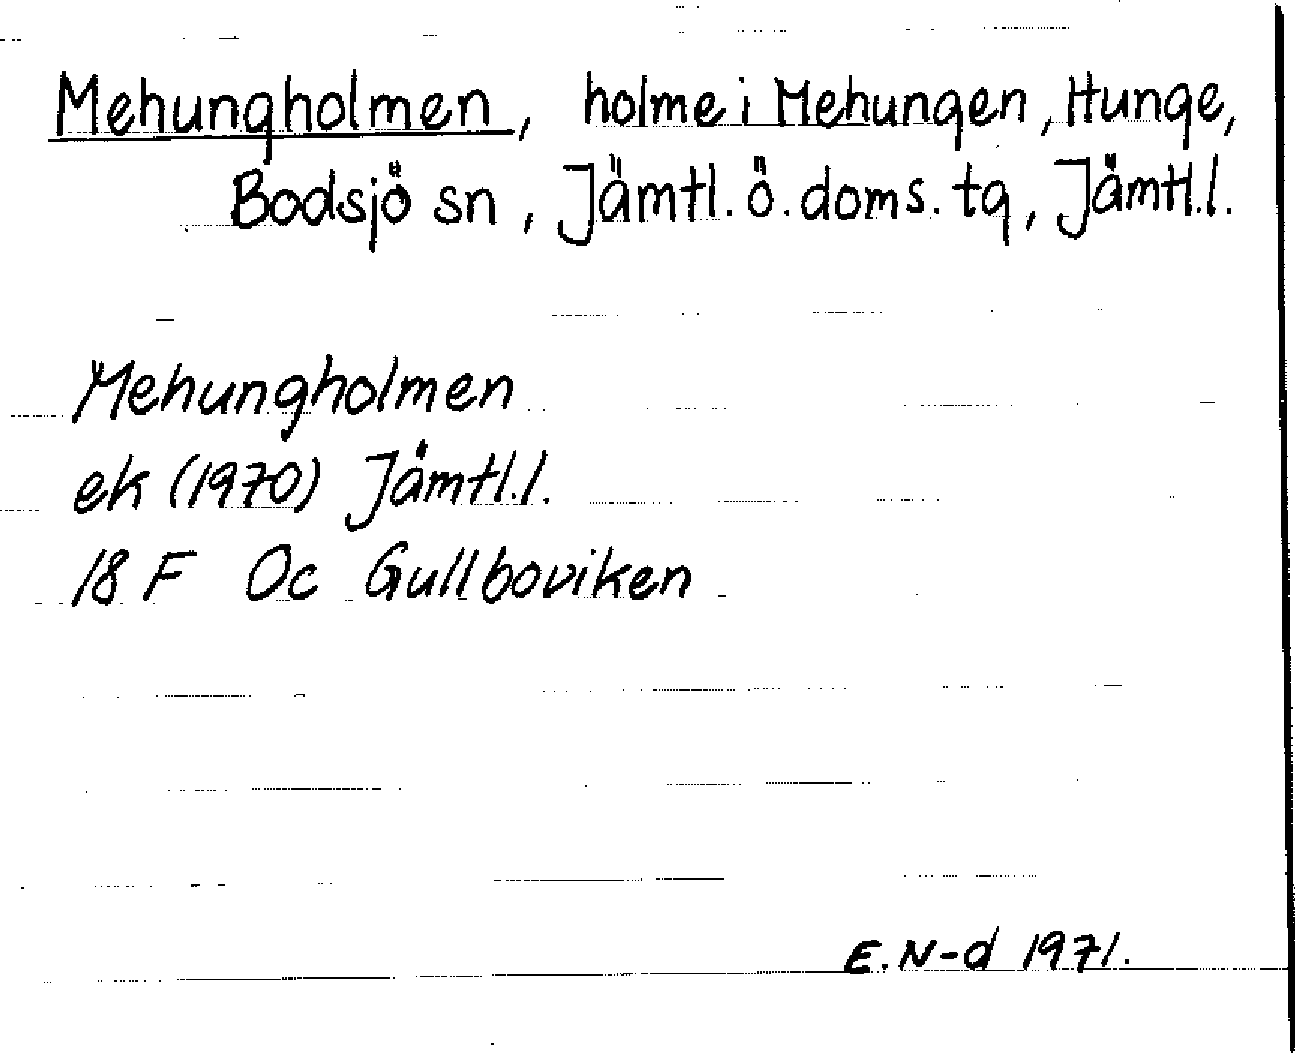 Mehungholmen, holme i Mehungen, Hunge,
Bodsjö sn, Jämtl. ö. doms. tg, Jämtl.l.
Mehungholmen
ek (1970) Jämtl.l.
18 F Oc Gullboviken
E.N-d 1971.